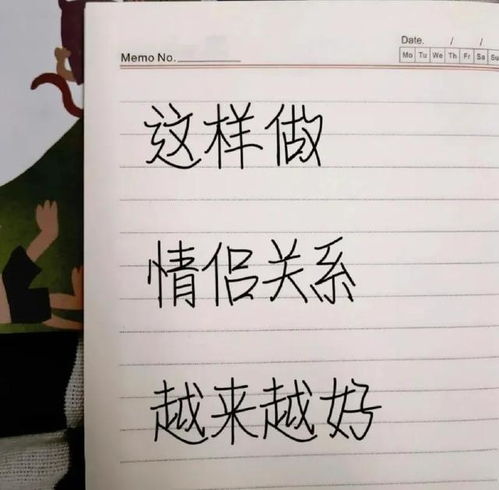 Date.      /      /
Memo No.
Mo Tu We Th Fr Sa Su
这样做
情侣关系
越来越好